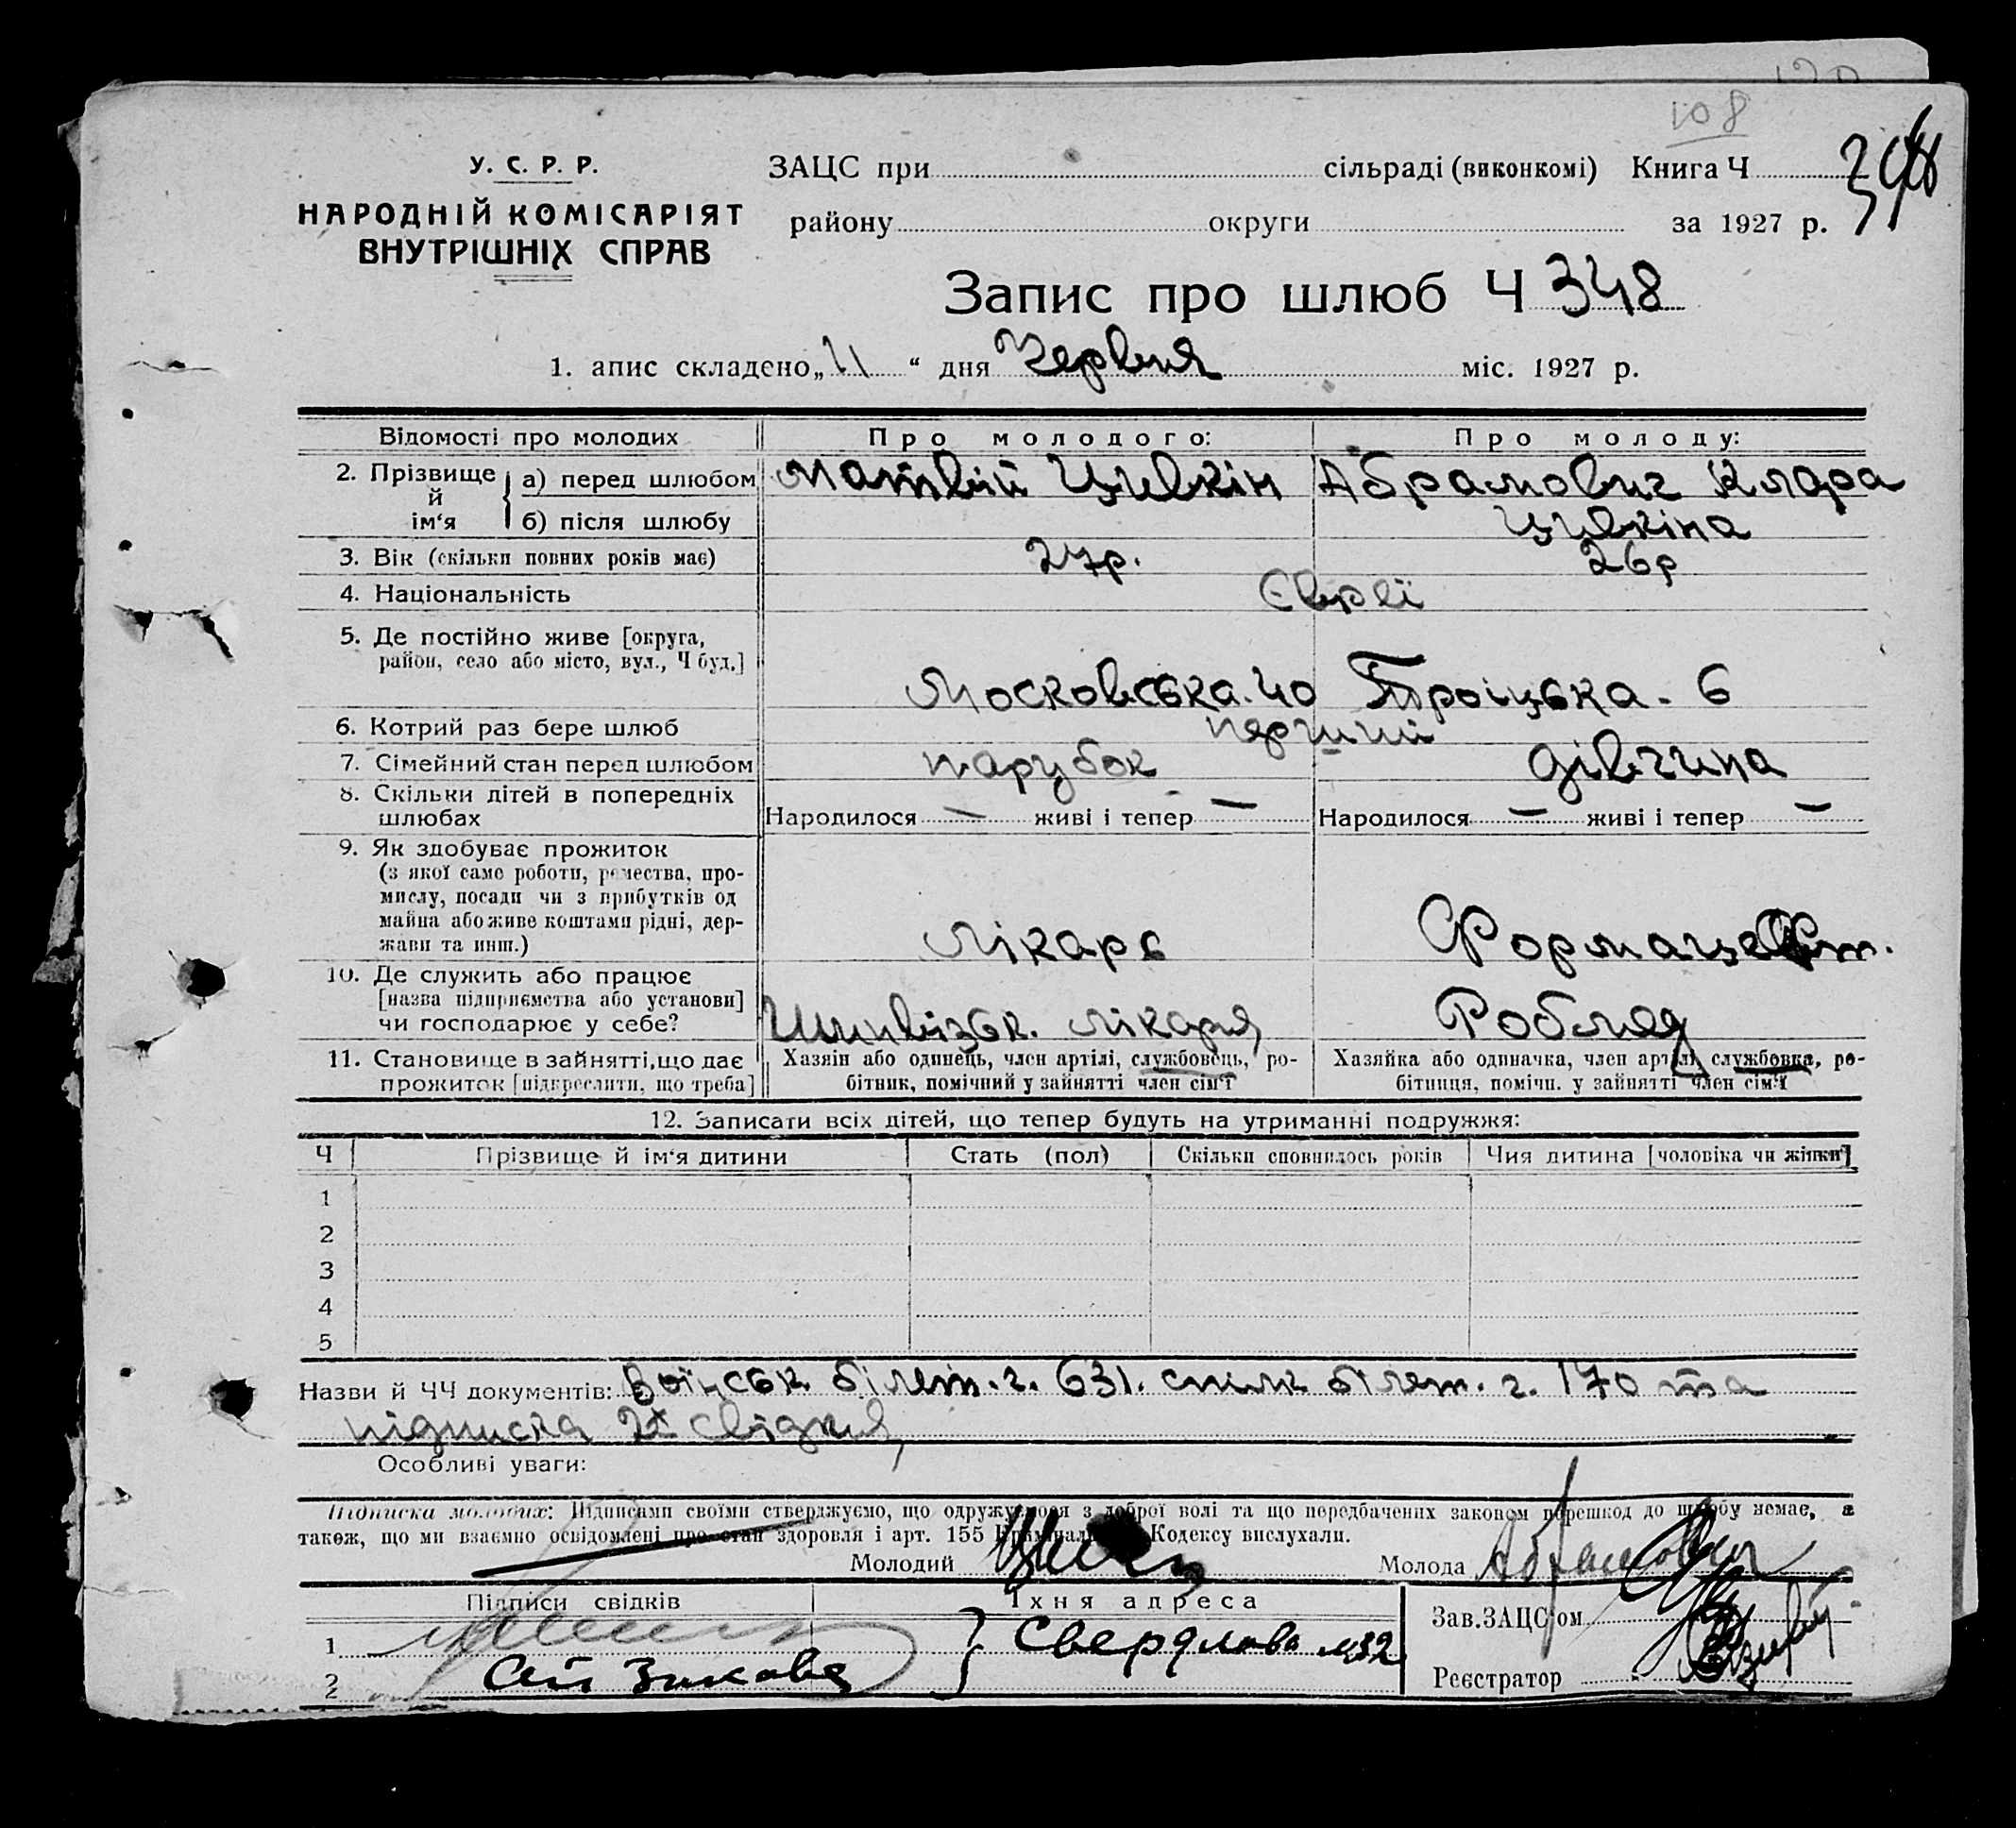 108
У. С. Р. Р.
НАРОДНІЙ КОМІСАРІЯТ
ВНУТРІШНІХ СПРАВ
ЗАЦС при сільраді (виконкомі) Книга Ч
району округи за 1927 р.
Запис про шлюб Ч 348
1. апис складено „11“ дня Червня міс. 1927 р.
Відомості про молодих Про молодого: Про молоду:
2. Прізвище й ім‘я а) перед шлюбом Матвій Цивкін Абрамович Клара
б) після шлюбу Цивкіна
3. Вік (скільки повних років має) 27р. 26р
4. Національність Євреї
5. Де постійно живе [округа,
район, село або місто, вул., Ч буд.]
Московська. 40 Троіцька - 6
6. Котрий раз бере шлюб перший
7. Сімейний стан перед шлюбом парубок дівчина
8. Скільки дітей в попередніх
шлюбах Народилося — живі і тепер — Народилося — живі і тепер —
9. Як здобуває прожиток
(з якої само роботи, ремества, про-
мислу, посади чи з прибутків од
майна або живе коштами рідні, дер-
жави та инш.) лікарь
10. Де служить або працює
[назва підприємства або установи]
чи господарює у себе? лікарня Робмед
11. Становище в зайнятті, що дає Хазяін або одинець, член артілі, службовець, ро- Хазяйка або одиначка, член артілі, службовка, ро-
прожиток [підкреслити, що треба] бітник, помічний у зайнятті член сім‘ї бітниця, помічн. у зайнятті член сім‘ї
12. Записати всіх дітей, що тепер будуть на утриманні подружжя:
Ч Прізвище й ім‘я дитини Стать (пол) Скільки сповнилось років Чия дитина [чоловіка чи жінки]
1
2
3
4
5
Назви й ЧЧ документів: Воїнськ білет. ч. 631. спілк білет. ч. 170 та
підписка 2х свідків
Особливі уваги:
Підписка молодих: Підписами своїми стверджуємо, що одружуємося з доброї волі та що передбачених законом перешкод до шлюбу немає, а
також, що ми взаємно освідомлені про стан здоровля і арт. 155 Кримінал Кодексу вислухали.
Молодий Молода Абрамович
Підписи свідків Їхня адреса Зав. ЗАЦС‘ом
1 Свердлова
2 Реєстратор
2